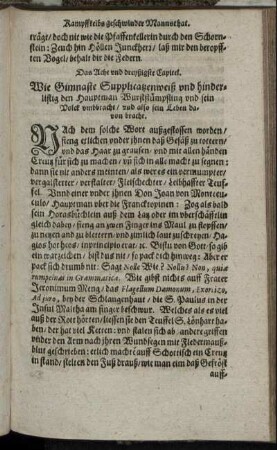 Kampffteibs geschwinder Mannsthat.
träge/ doch nit wie die Pfaffenkellerin durch den Schorn-
stein: Zeuch hin Höllen Junckherr/ laß mir den beropff-
ten Vogel/ behalt dir die Federn.
Das Acht vnd dreyssigste Capitel.
Wie Gimnaste Supplicatzenweiß vnd hinder-
listig den Hauptman Wurststümpfling vnd sein
Volck vmbbracht/ vnd also sein Leben da-
von brachte.
NAch dem solche Wort außgestossen worden/
fieng etlichen vnder jhnen daß Gesäß zu vetern/
vnd das Haar zu grausen/ vnd mit allen händen
Creutz für sich zu machen/ vñ sich in alle macht zu segnen:
dann sie nit anders meinten/ als wer es ein vermumpter/
vergaisterter/ verstalter/ Fleischechter/ Leibhaffter Teuf-
fel. Vnnd einer vnder jhnen Von Joan von Montecu-
culo/ Hauptman vber die Francktopinen: Zog als bald
sein Horasbüchlein auß dem Latz oder im vberschäfelin
gleich dabey/ fieng an zwen Finger ins Maul zu stopffen/
zu neyen vnd zu bletteren/ vnd zimlich laut zuschreyen: Ha-
gios hor heos/ in principio erat/ ꝛc. Bistu von Gott/ so gib
ein warzeichen/ bist du es nit/ so pack dich hinweg: Aber er
pack sich drumb nit: Sagt Nolle Wie? Nollu? Non, quia
rumpeiual in Grammatica. Wie gibst nichts auff Frater
Jeronimum Meng/ das Flagellum Dæmonum, Exorcizo,
Adjuro, bey der Schlangenhaut/ die S. Paulus in der
Insul Maltha am finger beschwur. Welches als es viel
auß der Rott hörten/ liessen sie den Teuffel S. Lönhart ha-
ben/ der hat viel Ketten: vnd stalen sich ab/ andere griffen
vnder den Arm nach jhren Wundsegen mit Fledermauß-
blut geschrieben: etlich machtẽ auff Schottisch ein Creutz
in stand/ stelten den Fuß drauff/ wie man eim daß Gefröst
auff-